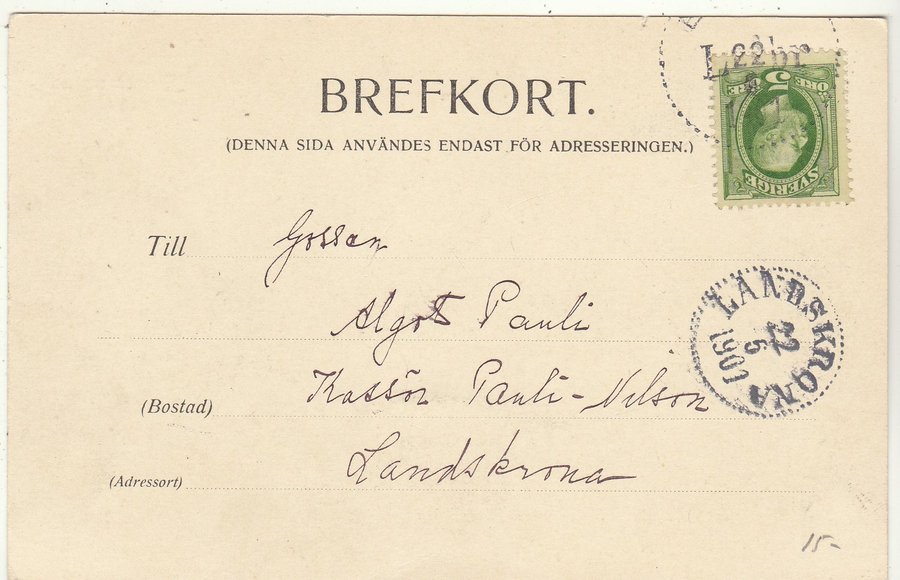 BREFKORT.
(DENNA SIDA ANVÄNDES ENDAST FÖR ADRESSERINGEN.)
5
ÖRE
SVERIGE
22
Till Gossen
Algot Pauli
LANDSKRONA
22
6
1901
(Bostad) Kassör Pauli-Nilson
(Adressort) Landskrona
15-